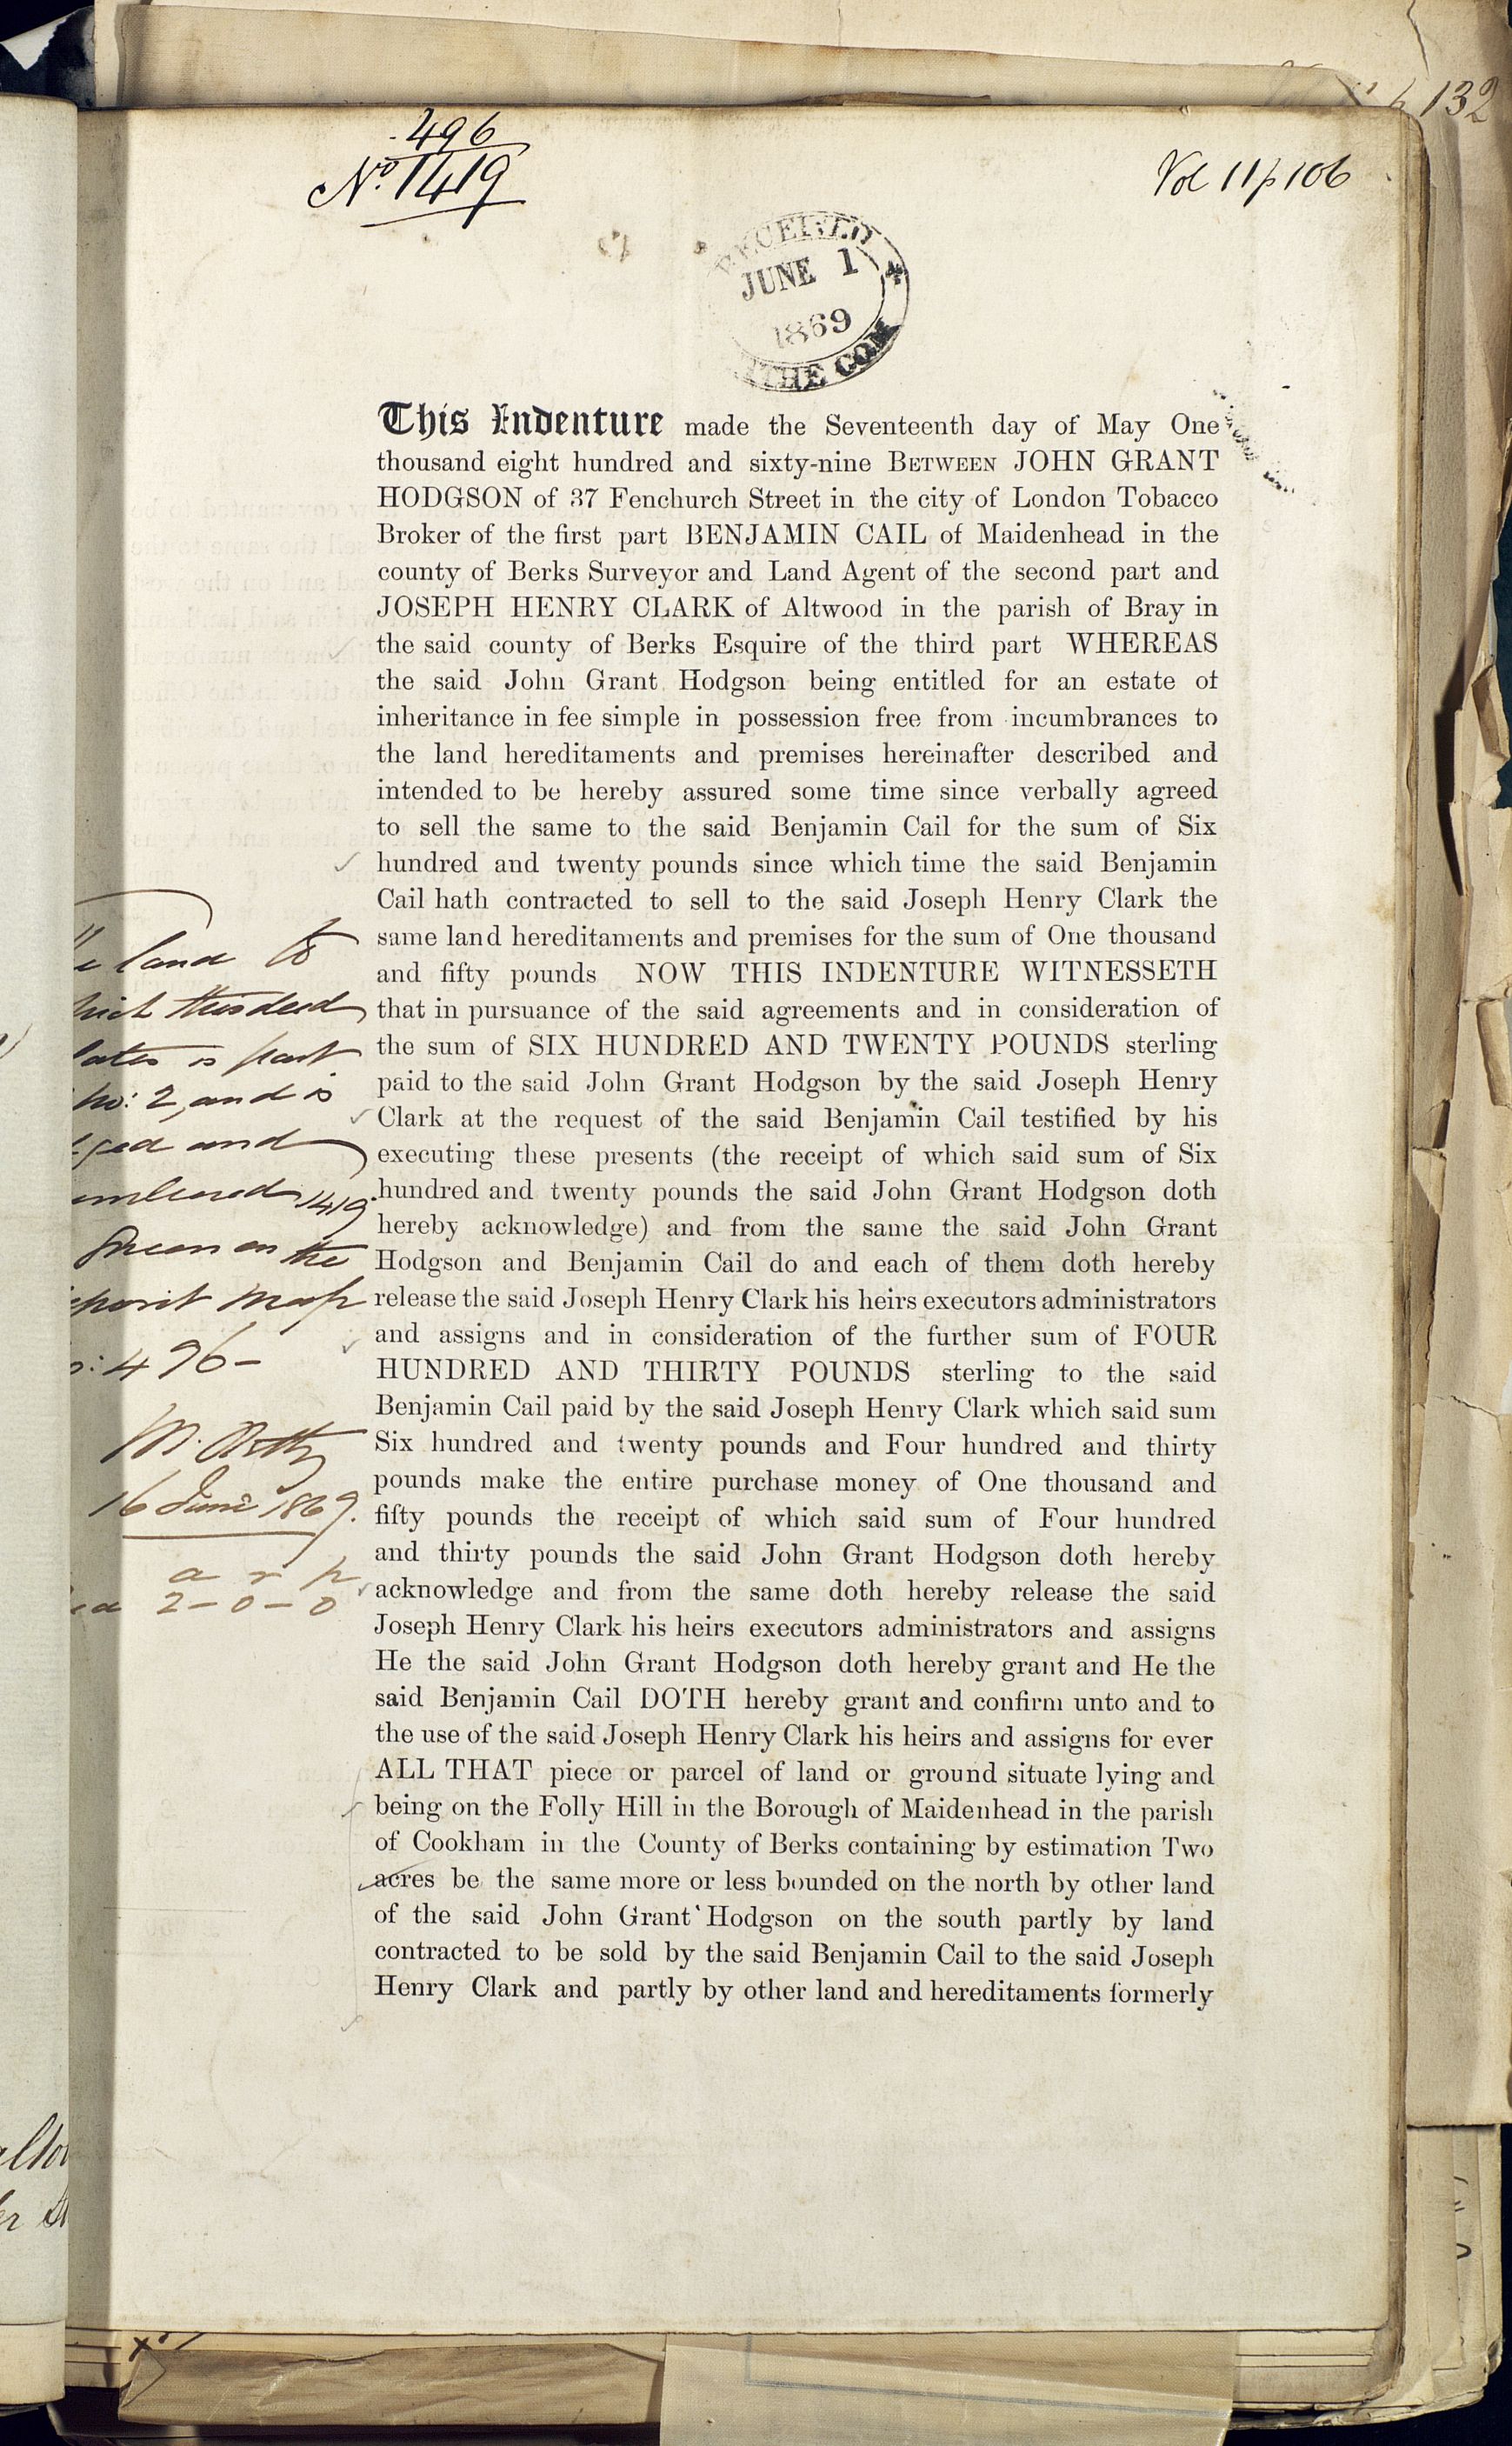 132
496
No. 1419
Vol 11 p 106
RECEIVED
JUNE 14
1869
THE COM
This Indenture made the Seventeenth day of May One
thousand eight hundred and sixty-nine BETWEEN JOHN GRANT
HODGSON of 37 Fenchurch Street in the city of London Tobacco
Broker of the first part BENJAMIN CAIL of Maidenhead in the
county of Berks Surveyor and Land Agent of the second part and
JOSEPH HENRY CLARK of Altwood in the parish of Bray in
the said county of Berks Esquire of the third part WHEREAS
the said John Grant Hodgson being entitled for an estate of
inheritance in fee simple in possession free from incumbrances to
the land hereditaments and premises hereinafter described and
intended to be hereby assured some time since verbally agreed
to sell the same to the said Benjamin Cail for the sum of Six
hundred and twenty pounds since which time the said Benjamin
Cail hath contracted to sell to the said Joseph Henry Clark the
same land hereditaments and premises for the sum of One thousand
and fifty pounds NOW THIS INDENTURE WITNESSETH
that in pursuance of the said agreements and in consideration of
the sum of SIX HUNDRED AND TWENTY POUNDS sterling
paid to the said John Grant Hodgson by the said Joseph Henry
Clark at the request of the said Benjamin Cail testified by his
executing these presents (the receipt of which said sum of Six
hundred and twenty pounds the said John Grant Hodgson doth
hereby acknowledge) and from the same the said John Grant
Hodgson and Benjamin Cail do and each of them doth hereby
release the said Joseph Henry Clark his heirs executors administrators
and assigns and in consideration of the further sum of FOUR
HUNDRED AND THIRTY POUNDS sterling to the said
Benjamin Cail paid by the said Joseph Henry Clark which said sum
Six hundred and twenty pounds and Four hundred and thirty
pounds make the entire purchase money of One thousand and
fifty pounds the receipt of which said sum of Four hundred
and thirty pounds the said John Grant Hodgson doth hereby
acknowledge and from the same doth hereby release the said
Joseph Henry Clark his heirs executors administrators and assigns
He the said John Grant Hodgson doth hereby grant and He the
said Benjamin Cail DOTH hereby grant and confirm unto and to
the use of the said Joseph Henry Clark his heirs and assigns for ever
ALL THAT piece or parcel of land or ground situate lying and
being on the Folly Hill in the Borough of Maidenhead in the parish
of Cookham in the County of Berks containing by estimation Two
acres be the same more or less bounded on the north by other land
of the said John Grant Hodgson on the south partly by land
contracted to be sold by the said Benjamin Cail to the said Joseph
Henry Clark and partly by other land and hereditaments formerly
land to
this deed
is part
no: 2, and is
and
1419
Green on the
map
496-
16 June 1869.
a r p
2 - 0 - 0